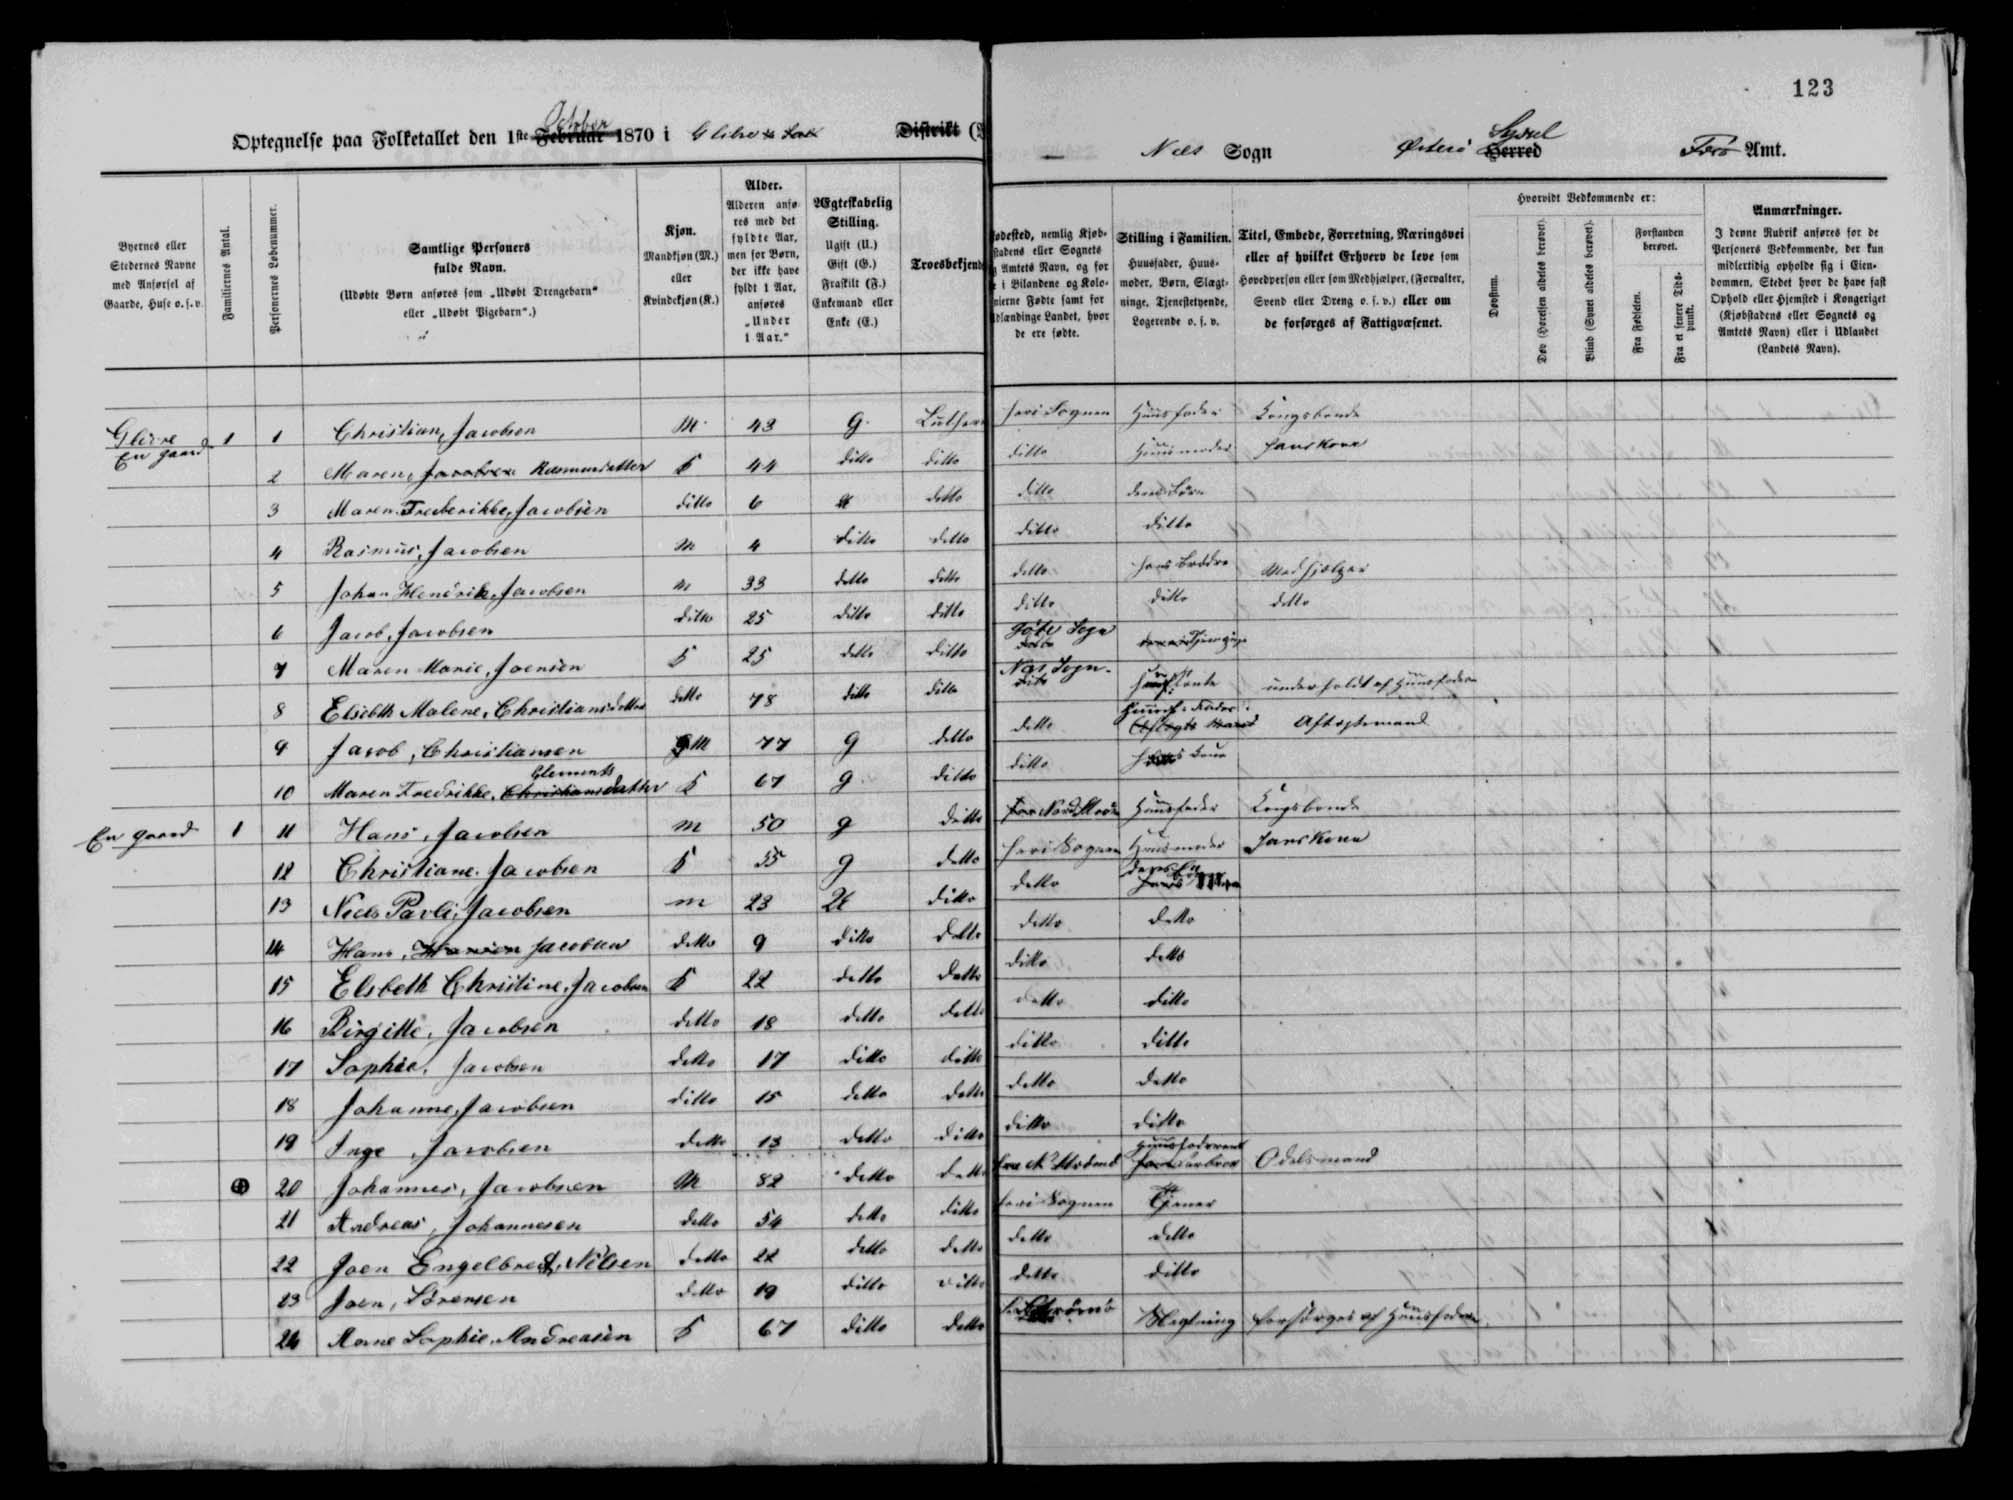 123
Optegnelse paa Folketallet den 1ste Februar October 1870 i Glibre Distrikt
Næs Sogn Østerø Herred Syssel Færø Amt.
Byernes eller Stedernes Navne med Anførsel af Gaarde, Huse o. s. v.
Familiernes Antal.
Personernes Løbenummer.
Samtlige Personers fulde Navn. (Udøbte Børn anføres som „Udøbt Drengebarn“ eller „Udøbt Pigebarn“.)
Kjøn. Mandkjøn (M.) eller Kvindekjøn (K.)
Alder. Alderen anføres med det fyldte Aar, men for Børn, der ikke have fyldt 1 Aar, anføres „Under 1 Aar.“
Ægteskabelig Stilling. Ugift (U.) Gift (G.) Fraskilt (F.) Enkemand eller Enke (E.)
Troesbekjend
ødested, nemlig Kjøb-
stadens eller Sognets
Amtets Navn, og for
i Bilandene og Kolo-
nierne Fødte samt for
dlændinge Landet, hvor
de ere fødte.
Stilling i Familien. Huusfader, Huusmoder, Børn, Slægtninge, Tjenestetyende, Logerende o. s. v.
Titel, Embede, Forretning, Næringsvei eller af hvilket Erhverv de leve som Hovedperson eller som Medhjælper, (Forvalter, Svend eller Dreng o. s. v.) eller om de forsørges af Fattigvæsenet.
Hvorvidt Vedkommende er:
Døvstum.
Døv (Hørelsen aldeles berøvet).
Blind (Synet aldeles berøvet).
Forstanden berøvet.
Fra Fødselen.
Fra et senere Tidspunkt.
Anmærkninger. I denne Rubrik anføres for de Personers Vedkommende, der kun midlertidig opholde sig i Eiendommen, Stedet hvor de have fast Ophold eller Hjemsted i Kongeriget (Kjøbstadens eller Sognets og Amtets Navn) eller i Udlandet (Landets Navn).
Glibre En gaard 1 1 Christian, Jacobsen M. 43 G. Luther her i Sognen Huusfader Kongsbonde
2 Maren, Jacobsen Rasmusdatter K 44 ditto ditto ditto Huusmoder hans Kone
3 Maren Frederikke, Jacobsen ditto 6 U ditto ditto deres Børn
4 Rasmus, Jacobsen M 4 ditto ditto ditto ditto
5 Johan Hendrik, Jacobsen M 33 ditto ditto ditto hans Brødre Medhjælper
6 Jacob, Jacobsen ditto 25 ditto ditto ditto ditto ditto
7 Maren Marie, Joensen K 25 ditto ditto Göte Sogn
8 Elsebth Malene, Christiansdatter ditto 78 ditto ditto Næs Sogn underholdt af Huusfaderen
9 Jacob, Christiansen M 77 g ditto ditto Aftægtsmand
10 Maren Fredrikke, Christiansdatter Clements K 67 g ditto ditto hans Kone
En gaard 1 11 Hans, Jacobsen M 50 g ditto Huusfader Kongsbonde
12 Christiane Jacobsen K 55 g ditto her i Sognen Huusmoder hans Kone
13 Niels Pavli, Jacobsen m 23 U ditto ditto
14 Hans, Hansen Jacobsen ditto 9 ditto ditto ditto ditto
15 Elsbeth Christine, Jacobsen K 22 ditto ditto ditto ditto
16 Birgitte, Jacobsen ditto 18 ditto ditto ditto ditto
17 Sophie, Jacobsen ditto 17 ditto ditto ditto ditto
18 Johanne, Jacobsen ditto 15 ditto ditto ditto ditto
19 Inge, Jacobsen ditto 13 ditto ditto ditto ditto
20 Johannes, Jacobsen M 82 ditto ditto Odelsmand
21 Andreas, Johannesen ditto 54 ditto ditto her i Sognen Tjener
22 Joen Engelbredt, Nilsen ditto 22 ditto ditto ditto ditto
23 Joen, Sörensen ditto 19 ditto ditto ditto ditto
24 Anne Sophie, Andreasen K 67 ditto ditto Slægtning forsörges af Huusfaderen